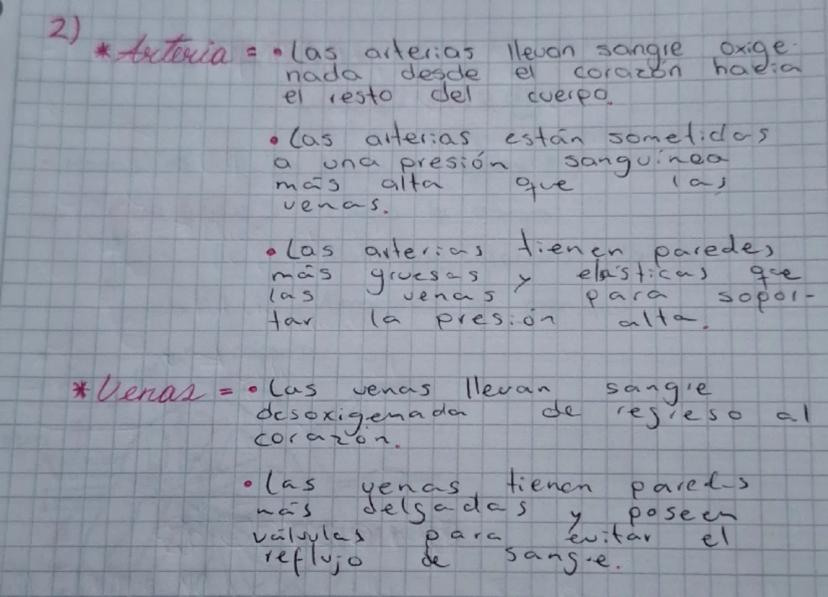 2)
* Arteria = • Las arterias llevan sangre oxige-
nada desde el corazón hacia
el resto del cuerpo.
• Las arterias están sometidas
a una presión sanguínea
más alta que las
venas.
• Las arterias tienen paredes
más gruesas y elásticas que
las venas para sopor-
tar la presión alta.
* Venas = • Las venas llevan sangre
desoxigenada de regreso al
corazón.
• Las venas tienen paredes
más delgadas y poseen
válvulas para evitar el
reflujo de sangre.